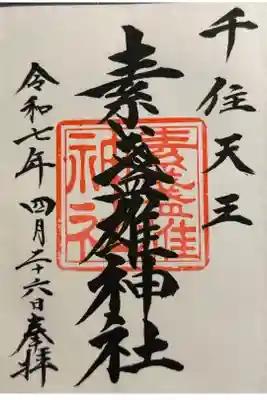 千住天王
素盞雄神社
素盞雄
神社
令和七年 四月二十六日 奉拝